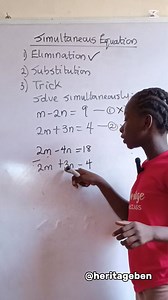 Simultaneous Equation
1) Elimination ✓
2) Substitution
3) Trick
Solve simultaneously
m - 2n = 9 - ① X
2m + 3n = 4 - ②
2m - 4n = 18
- 2m + 3n - 4
@heritageben